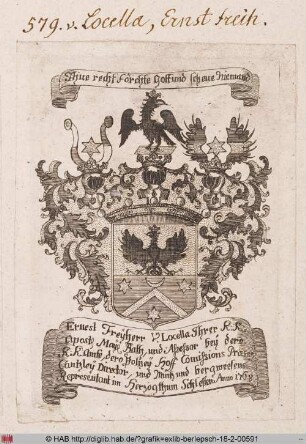 579. v. Locella, Ernst freih.
Thue recht förchte Gott und scheue Niemand
Ernest Freyherr V. Locella Ihrer K.K.
Apost. May. Rath, und Assessor bey dero
K.K. dero Hoff Comissions
Director, und Münz und bergwesens
Representant im Herzogthum Schlesien. Anno
© HAB http://diglib.hab.de/?grafik=exlib-berlepsch-16-2-00591